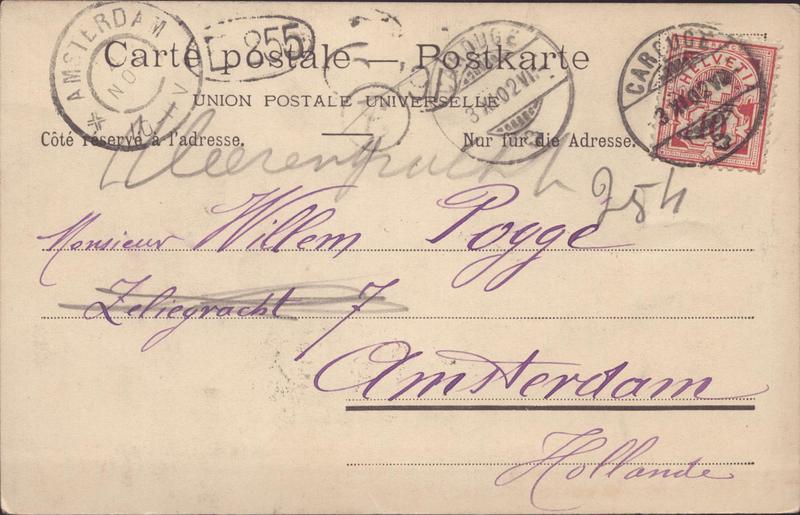 AMSTERDAM
NO
255
Carte postale — Postkarte
UNION POSTALE UNIVERSELLE
Côté réservé à l'adresse.
Nur für die Adresse.
CAROUGE
3.XI.02.VII
CAROUGE
3.XI.02.VII
HELVETIA
10
Heerengracht
254
Monsieur Willem Pogge
Zeliegracht 7
Amsterdam
Hollande